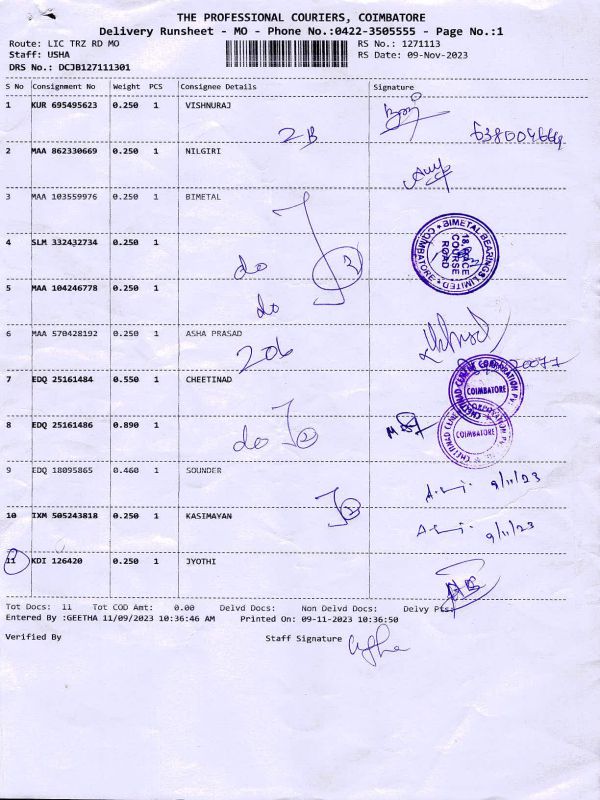 THE PROFESSIONAL COURIERS, COIMBATORE
Delivery Runsheet - MO - Phone No.:0422-3505555 - Page No.:1
Route: LIC TRZ RD MO RS No.: 1271113
Staff: USHA RS Date: 09-Nov-2023
DRS No.: DCJB127111301
S No Consignment No Weight PCS Consignee Details Signature
1 KUR 695495623 0.250 1 VISHNURAJ
2B
2 MAA 862330669 0.250 1 NILGIRI
3 MAA 103559976 0.250 1 BIMETAL
BIMETAL BEARINGS LIMITED
18, RACE COURSE ROAD
COIMBATORE
4 SLM 332432734 0.250 1
do
5 MAA 104246778 0.250 1
do
6 MAA 570428192 0.250 1 ASHA PRASAD
206
7 EDQ 25161484 0.550 1 CHEETINAD
COIMBATORE
8 EDQ 25161486 0.890 1
do
COIMBATORE
9 EDQ 18095865 0.460 1 SOUNDER
9/11/23
10 IXM 505243818 0.250 1 KASIMAYAN
9/11/23
11 KDI 126420 0.250 1 JYOTHI
Tot Docs: 11 Tot COD Amt: 0.00 Delvd Docs: Non Delvd Docs: Delvy Pts:
Entered By :GEETHA 11/09/2023 10:36:46 AM Printed On: 09-11-2023 10:36:50
Verified By Staff Signature